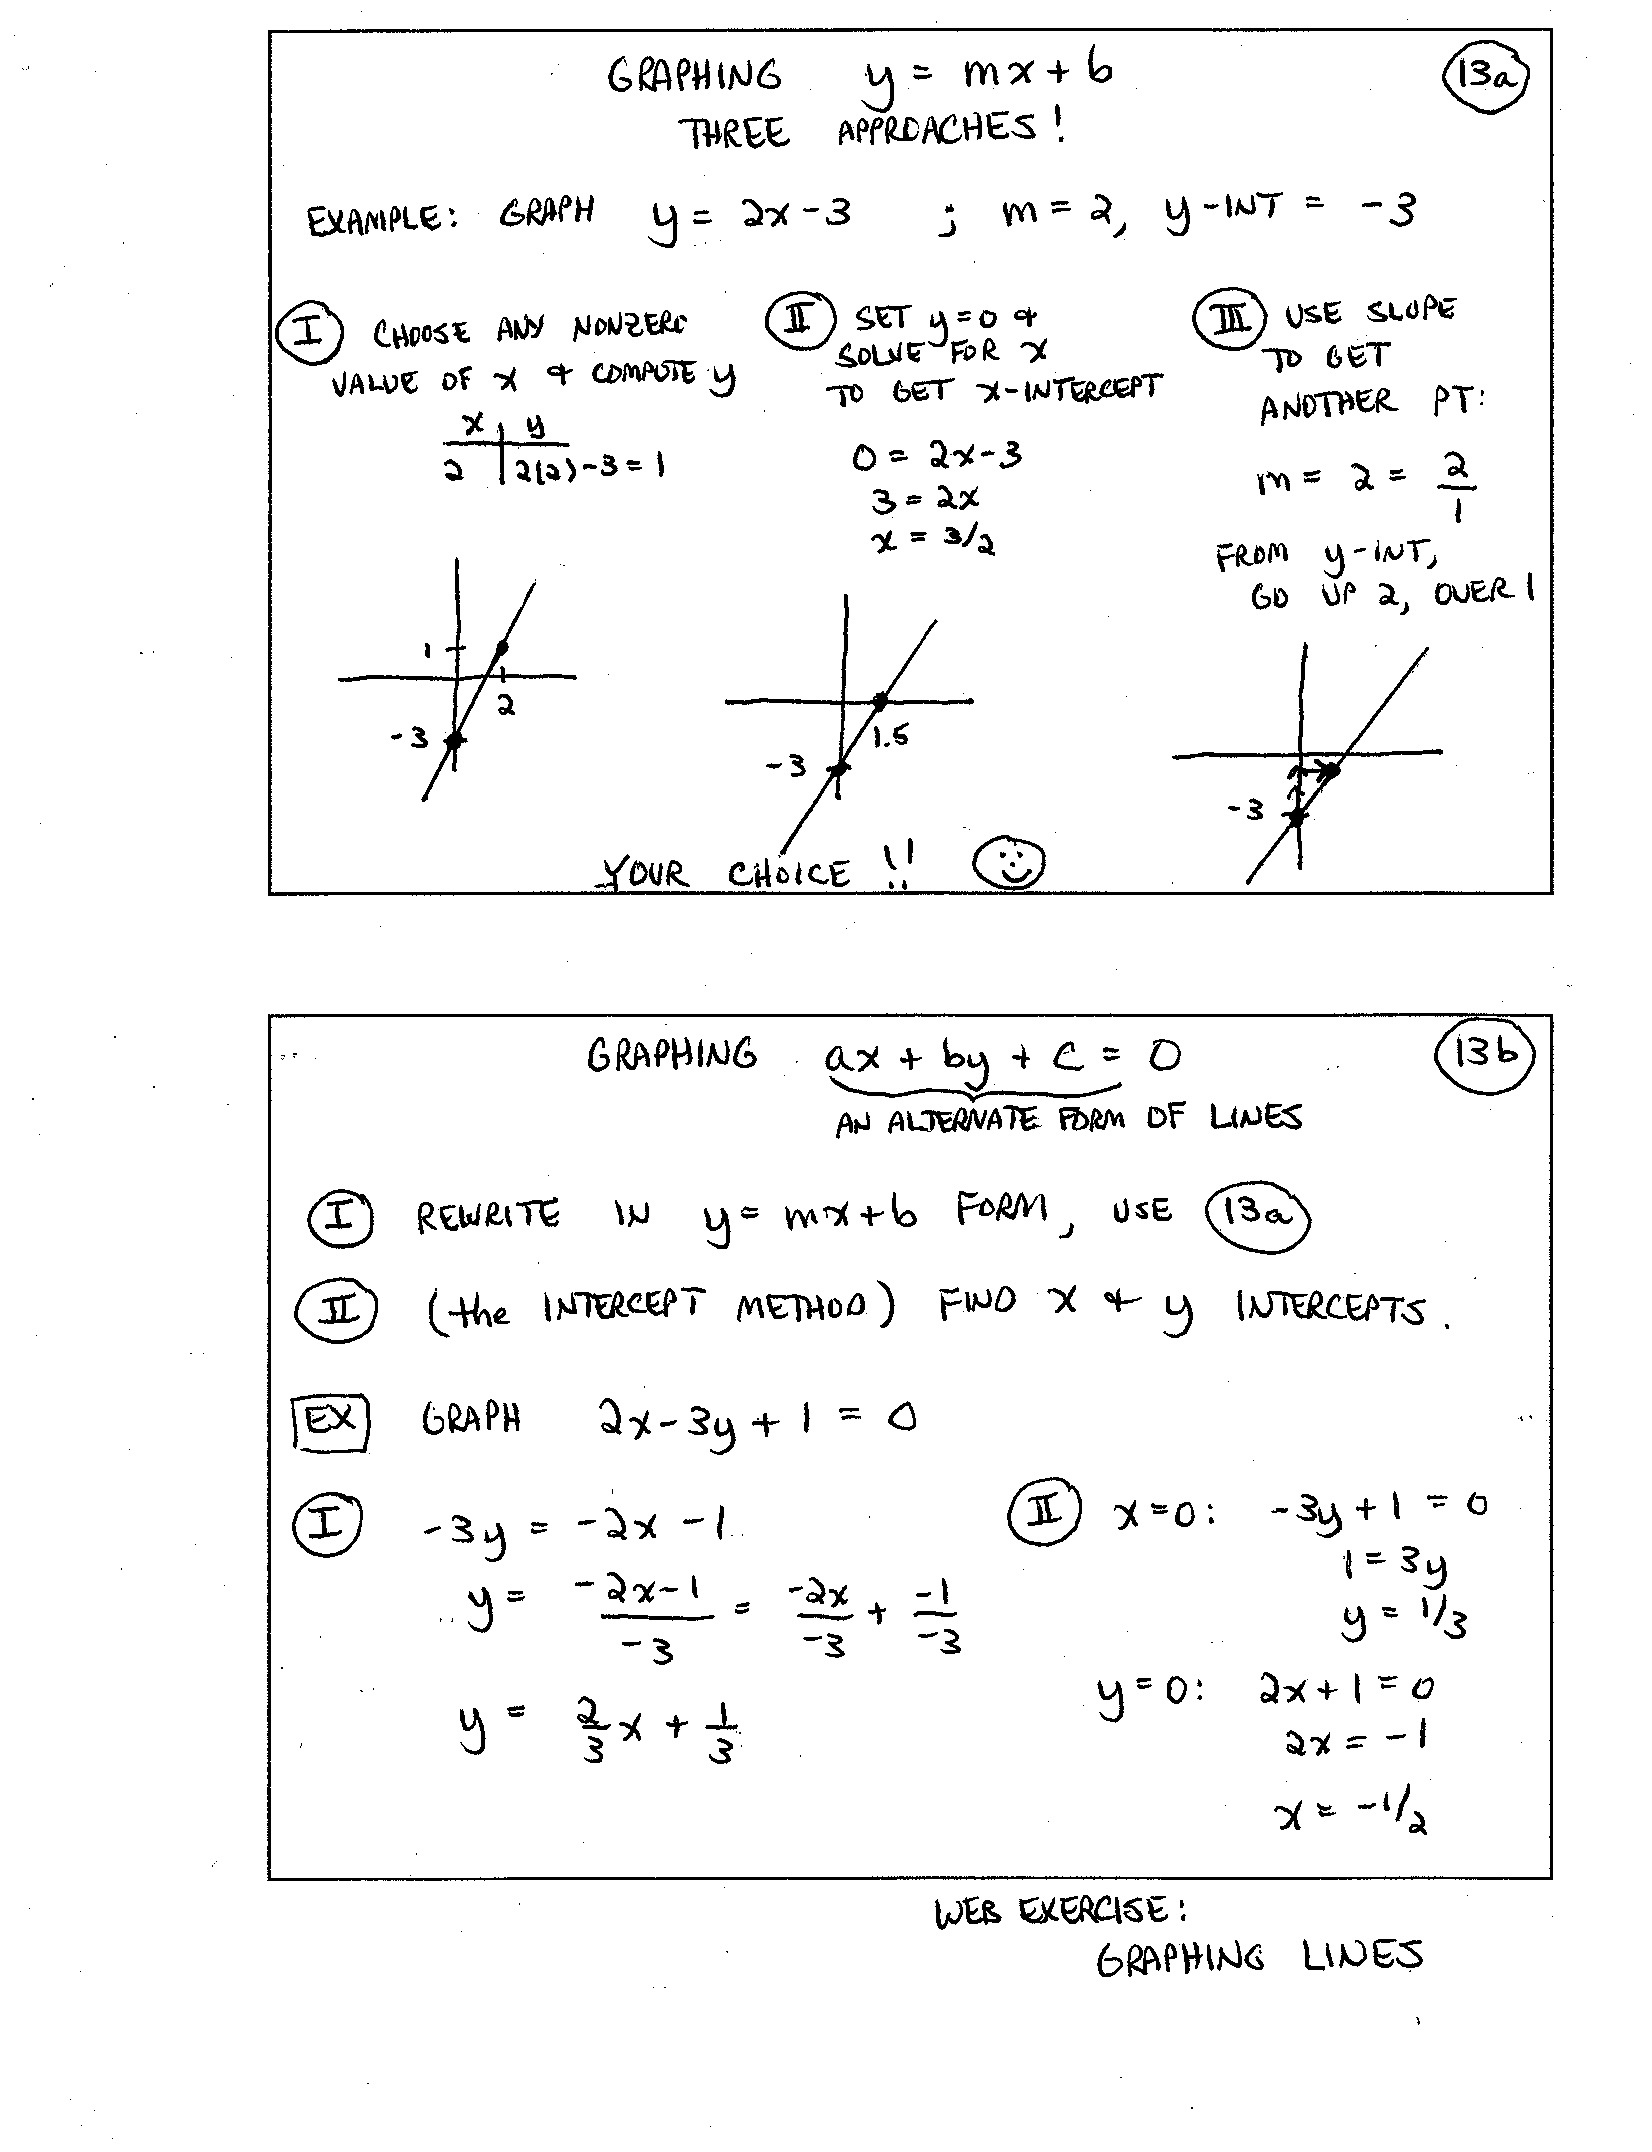 GRAPHING y = mx + b
13a
THREE APPROACHES!
EXAMPLE: GRAPH y = 2x - 3 ; m = 2, y-INT = -3
I CHOOSE ANY NONZERO
VALUE OF x & COMPUTE y
x | y
2 | 2(2)-3 = 1
1
2
-3
II SET y=0 &
SOLVE FOR x
TO GET x-INTERCEPT
0 = 2x-3
3 = 2x
x = 3/2
1.5
-3
III USE SLOPE
TO GET
ANOTHER PT:
m = 2 = 2/1
FROM y-INT,
GO UP 2, OVER 1
-3
YOUR CHOICE !!
GRAPHING ax + by + c = 0
13b
AN ALTERNATE FORM OF LINES
I REWRITE IN y = mx+b FORM, USE 13a
II (the INTERCEPT METHOD) FIND x & y INTERCEPTS.
EX GRAPH 2x-3y+1 = 0
I -3y = -2x -1
y = -2x-1/-3 = -2x/-3 + -1/-3
y = 2/3 x + 1/3
II x=0: -3y+1 = 0
1 = 3y
y = 1/3
y=0: 2x+1=0
2x = -1
x = -1/2
WEB EXERCISE:
GRAPHING LINES